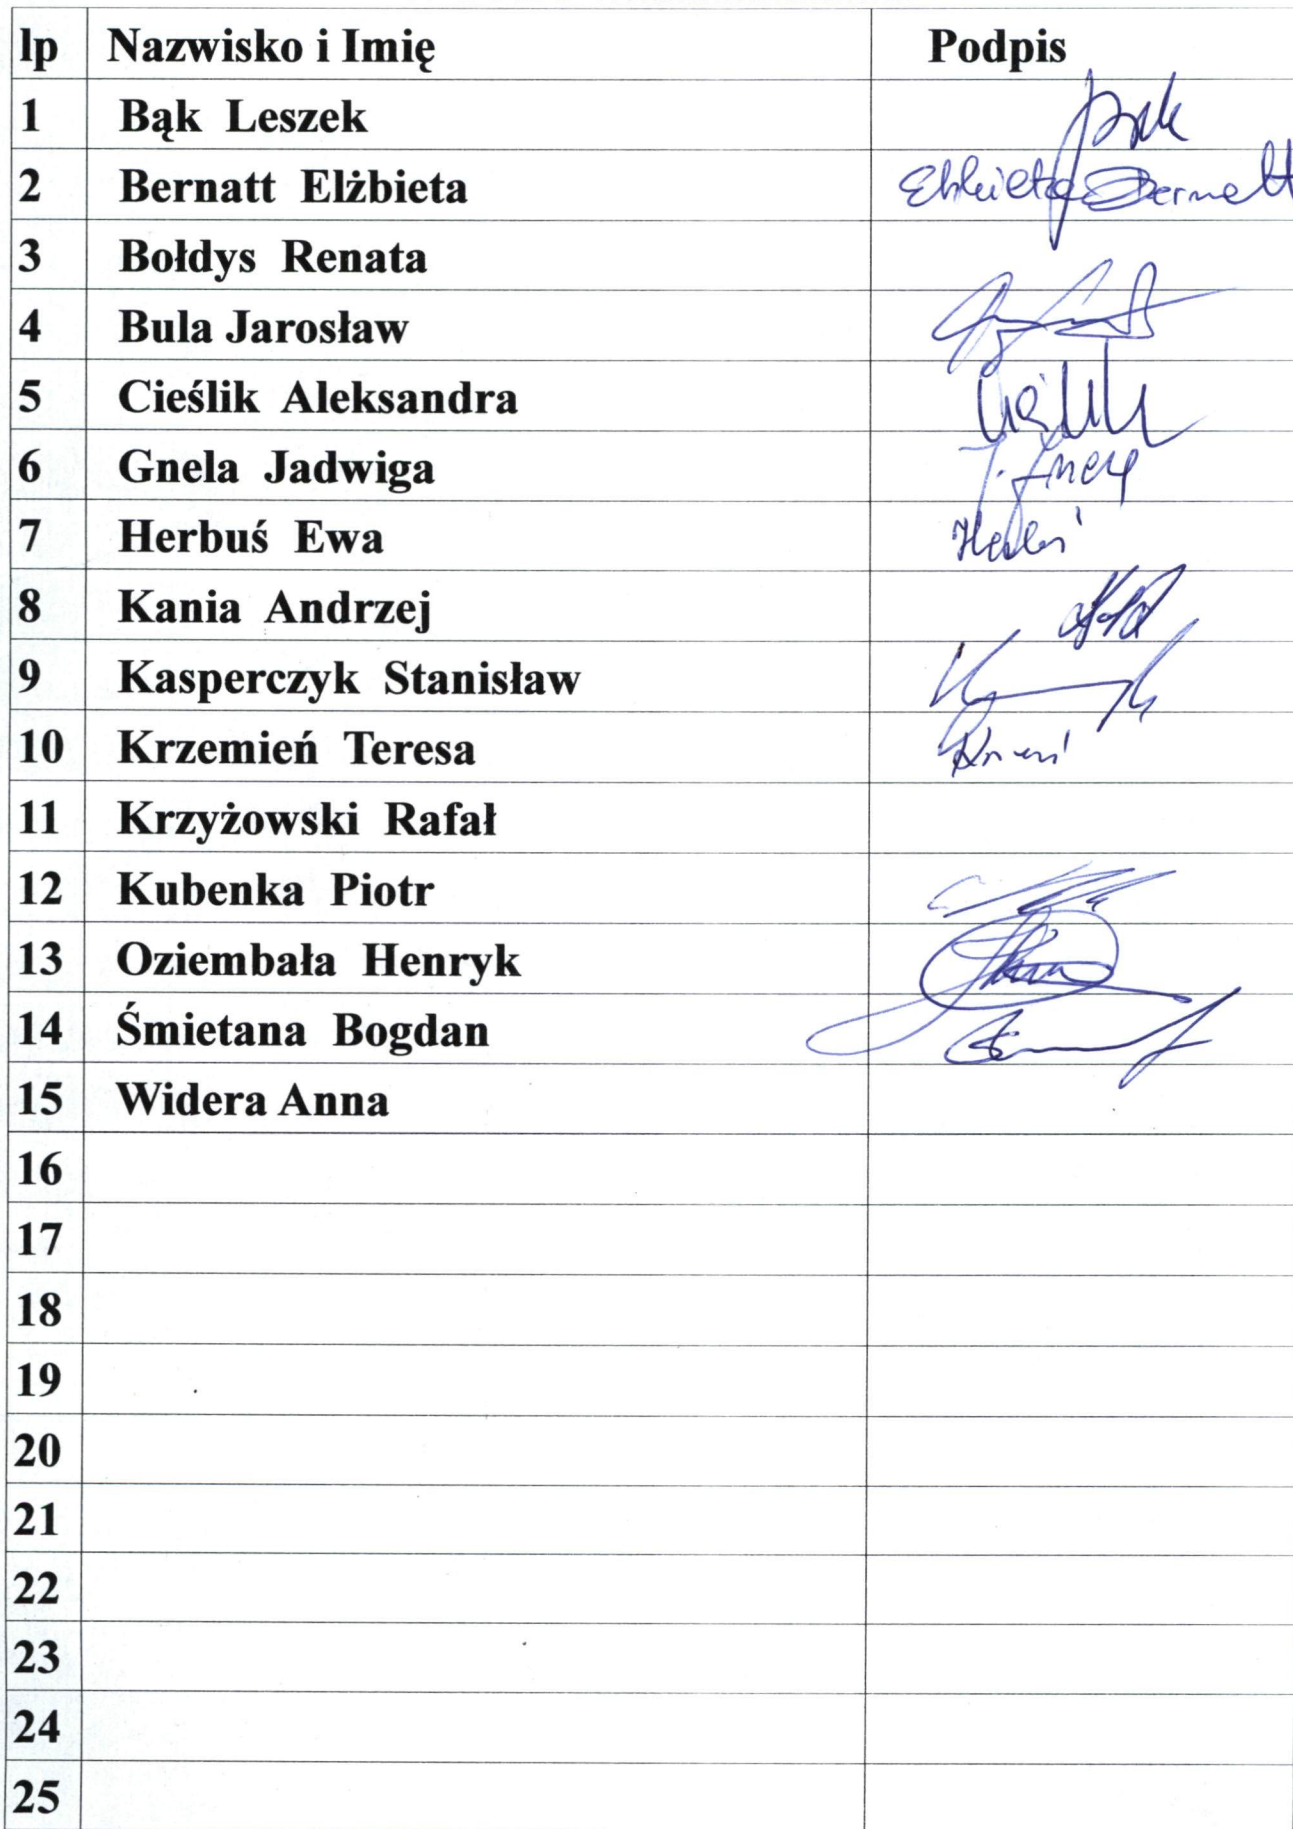 lp Nazwisko i Imię Podpis
1 Bąk Leszek
2 Bernatt Elżbieta Elżbieta Bernatt
3 Bołdys Renata
4 Bula Jarosław
5 Cieślik Aleksandra
6 Gnela Jadwiga
7 Herbuś Ewa
8 Kania Andrzej
9 Kasperczyk Stanisław
10 Krzemień Teresa
11 Krzyżowski Rafał
12 Kubenka Piotr
13 Oziembała Henryk
14 Śmietana Bogdan
15 Widera Anna
16
17
18
19
20
21
22
23
24
25